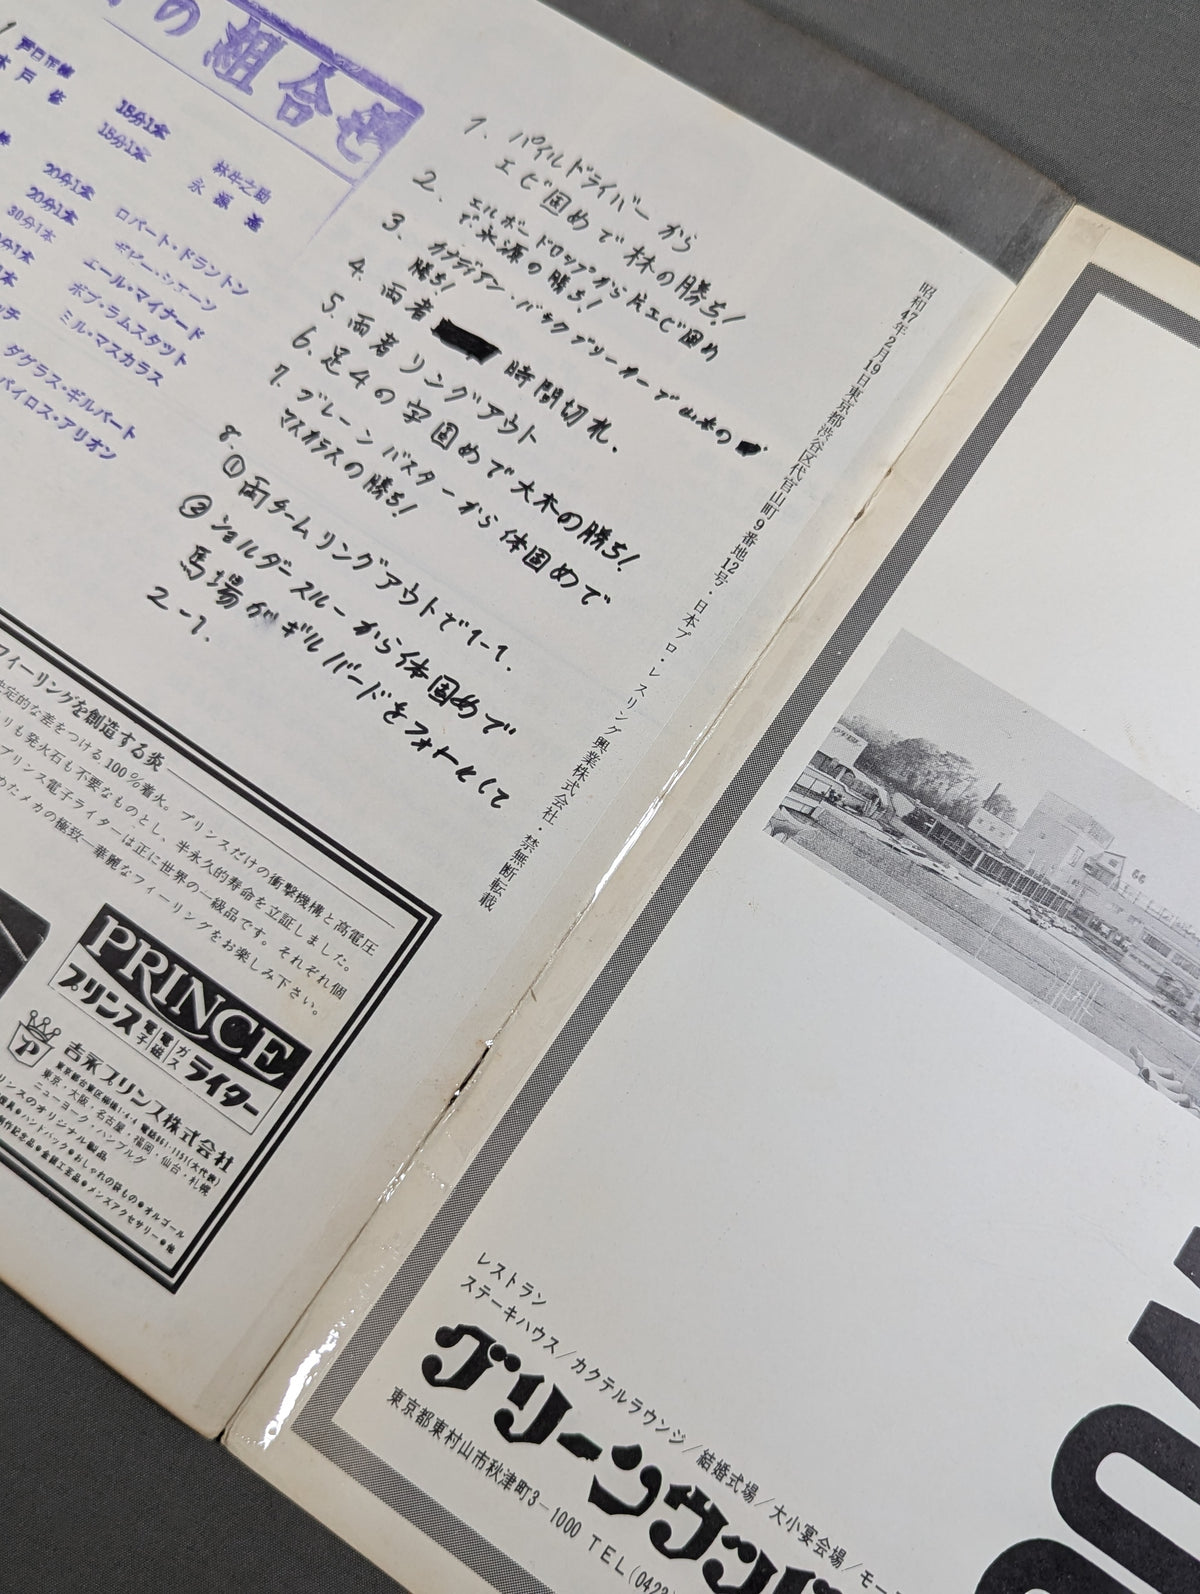 の組合せ
戸口正徳
木戸修
15分1本
15分1本
林牛之助
永源遙
20分1本
20分1本
30分1本
ロバート・ドラントン
ボビー・シエーン
エール・マイナード
ボブ・ラムスタット
ミル・マスカラス
ダグラス・ギルバート
パイロス・アリオン
1. パイルドライバーから
エビ固めで林の勝ち!
2. エルボードロップから片エビ固め
で永源の勝ち!
3. カナディアン・バックブリーカーで山本の
勝ち!
4. 両者 時間切れ.
5. 両者リングアウト
6. 足4の字固めで大木の勝ち!
7. ブレーンバスターから体固めで
マスカラスの勝ち!
8.
①両チームリングアウトで1-1.
②ショルダースルーから体固めで
馬場がギルバードをフォールして
2-1.
昭和47年2月19日東京都渋谷区代官山町9番地12号・日本プロ・レスリング興業株式会社・禁無断転載
フィーリングを創造する炎
決定的な差をつける100%着火。プリンスだけの衝撃機構と高電圧
りも発火石も不要なものとし、半永久的寿命を立証しました。
プリンス電子ライターは正に世界の一級品です。それぞれ個
めたメカの極致―華麗なフィーリングをお楽しみ下さい。
PRINCE
プリンス電子電磁ガスライター
P
吉永プリンス株式会社
東京・大阪・名古屋・福岡・仙台・札幌
ニューヨーク・ハンブルグ
リンスのオリジナル製品
●ハンドバック●おしゃれの袋もの●オルゴール
制作記念品●金銀工芸品●メンズアクセサリー●他
レストラン
ステーキハウス/カクテルラウンジ/結婚式場/大小宴会場/モー
グリーンウッド
東京都東村山市秋津町3-1000 TEL(0423